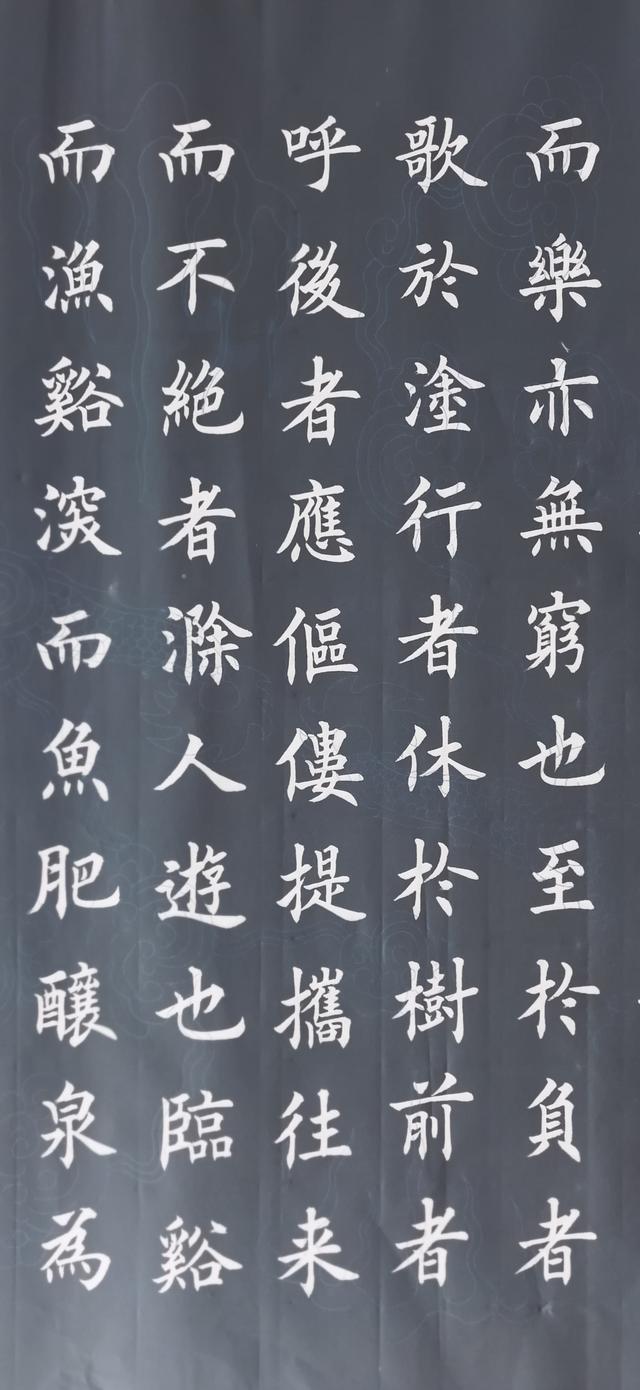 而樂亦無窮也至於負者
歌於塗行者休於樹前者
呼後者應傴僂提攜往来
而不絕者滁人遊也臨谿
而漁谿深而魚肥釀泉為